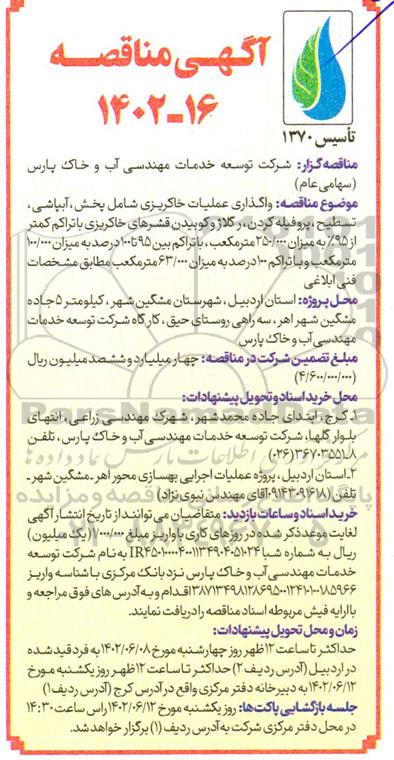 آگهی مناقصه
۱۶-۱۴۰۲
تأسیس ۱۳۷۰
مناقصه گزار: شرکت توسعه خدمات مهندسی آب و خاک پارس
(سهامی عام)
موضوع مناقصه: واگذاری عملیات خاکریزی شامل پخش، آبپاشی،
تسطیح، پروفیله کردن، رگلاژ و کوبیدن قشرهای خاکریزی با تراکم کمتر
از ۹۵٪ به میزان ۲۵۰/۰۰۰ مترمکعب، با تراکم بین ۹۵ تا ۱۰۰ درصد به میزان ۱۰۰/۰۰۰
مترمکعب و با تراکم ۱۰۰ درصد به میزان ۶۳/۰۰۰ مترمکعب مطابق مشخصات
فنی ابلاغی
محل پروژه: استان اردبیل، شهرستان مشگین شهر، کیلومتر ۵ جاده
مشگین شهر اهر، سه راهی روستای حیق، کارگاه شرکت توسعه خدمات
مهندسی آب و خاک پارس
مبلغ تضمین شرکت در مناقصه: چهار میلیارد و ششصد میلیون ریال
(۴/۶۰۰/۰۰۰/۰۰۰)
محل خرید اسناد و تحویل پیشنهادات:
۱. کرج، ابتدای جاده محمدشهر، شهرک مهندسی زراعی، انتهای
بلوار گلها، شرکت توسعه خدمات مهندسی آب و خاک پارس، تلفن
۳۶۷۰۳۵۵۱_۸ (۰۲۶)
۲. استان اردبیل، پروژه عملیات اجرایی بهسازی محور اهر ـ مشگین شهر ـ
تلفن (۰۹۱۴۳۰۹۶۱۸۱ آقای مهندس نبوی نژاد)
خرید اسناد و ساعات بازدید: متقاضیان می توانند از تاریخ انتشار آگهی
لغایت موعد ذکر شده در روزهای کاری با واریز مبلغ ۱/۰۰۰/۰۰۰ (یک میلیون)
ریال به شماره شبا به نام شرکت توسعه
خدمات مهندسی آب و خاک پارس نزد بانک مرکزی با شناسه واریز
اقدام و به آدرس های فوق مراجعه و
با ارایه فیش مربوطه اسناد مناقصه را دریافت نمایند.
زمان و محل تحویل پیشنهادات:
حداکثر تا ساعت ۱۲ ظهر روز چهارشنبه مورخ ۱۴۰۲/۰۶/۰۸ به فرد قید شده
در اردبیل (آدرس ردیف ۲) حداکثر تا ساعت ۱۲ ظهر روز یکشنبه مورخ
۱۴۰۲/۰۶/۱۲ به دبیرخانه دفتر مرکزی واقع در آدرس کرج (آدرس ردیف ۱)
جلسه بازگشایی پاکت ها: روز یکشنبه مورخ ۱۴۰۲/۰۶/۱۲ راس ساعت ۱۴:۳۰
در محل دفتر مرکزی شرکت به آدرس ردیف (۱) برگزار خواهد شد.